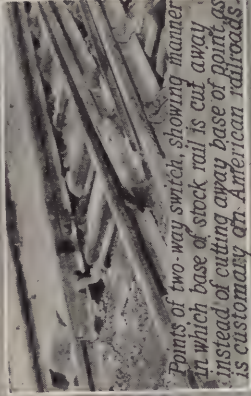 Points of two-way switch, showing manner
in which base of stock rail is cut away
instead of cutting away base of point, as
is customary on American railroads.